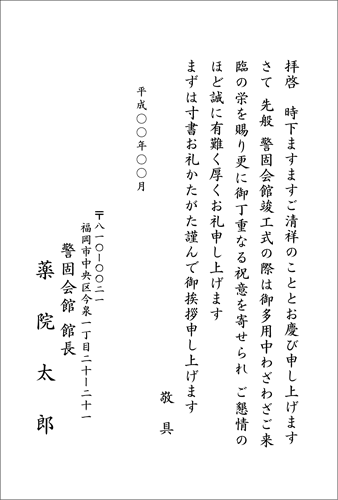 拝啓　時下ますますご清祥のこととお慶び申し上げます
さて 先般 警固会館竣工式の際は御多用中わざわざご来
臨の栄を賜り更に御丁重なる祝意を寄せられ ご懇情の
ほど誠に有難く厚くお礼申し上げます
まずは寸書お礼かたがた謹んで御挨拶申し上げます
敬具
平成〇〇年〇〇月
〒八一〇ー〇〇二一
福岡市中央区今泉一丁目二十ー二十一
警固会館 館長
薬院太郎